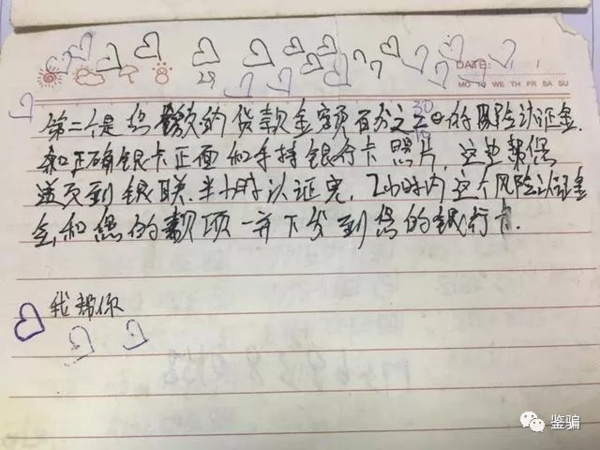 DATE:
29
MO TU WE TH FR SA SU
第二个是您贷款的贷款金额百分之30的风险认证金.
和正确银卡正面和手持银行卡照片,这边帮您
递交到银联.半小时认证完,2小时内这个风险认证金
会和您的款项一并下发到您的银行卡.
我帮你
鉴骗